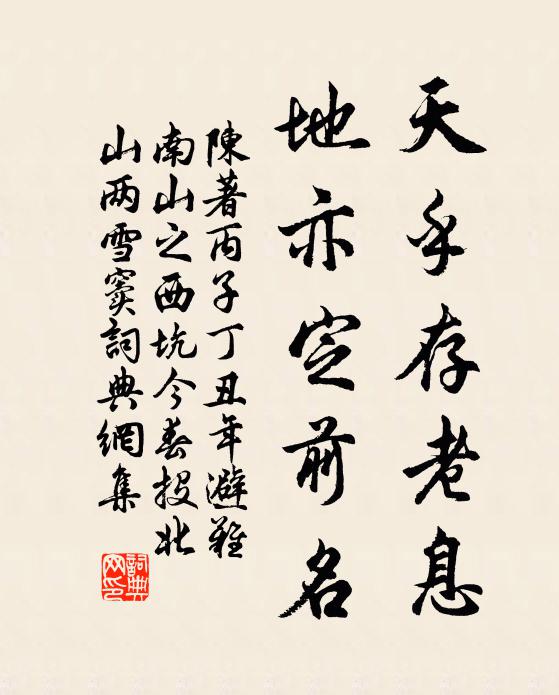 天乎存老息
地亦定前名
陳著丙子丁丑年避難
南山之西坑今春投北
山两雪窦詞典網集
詞典网印